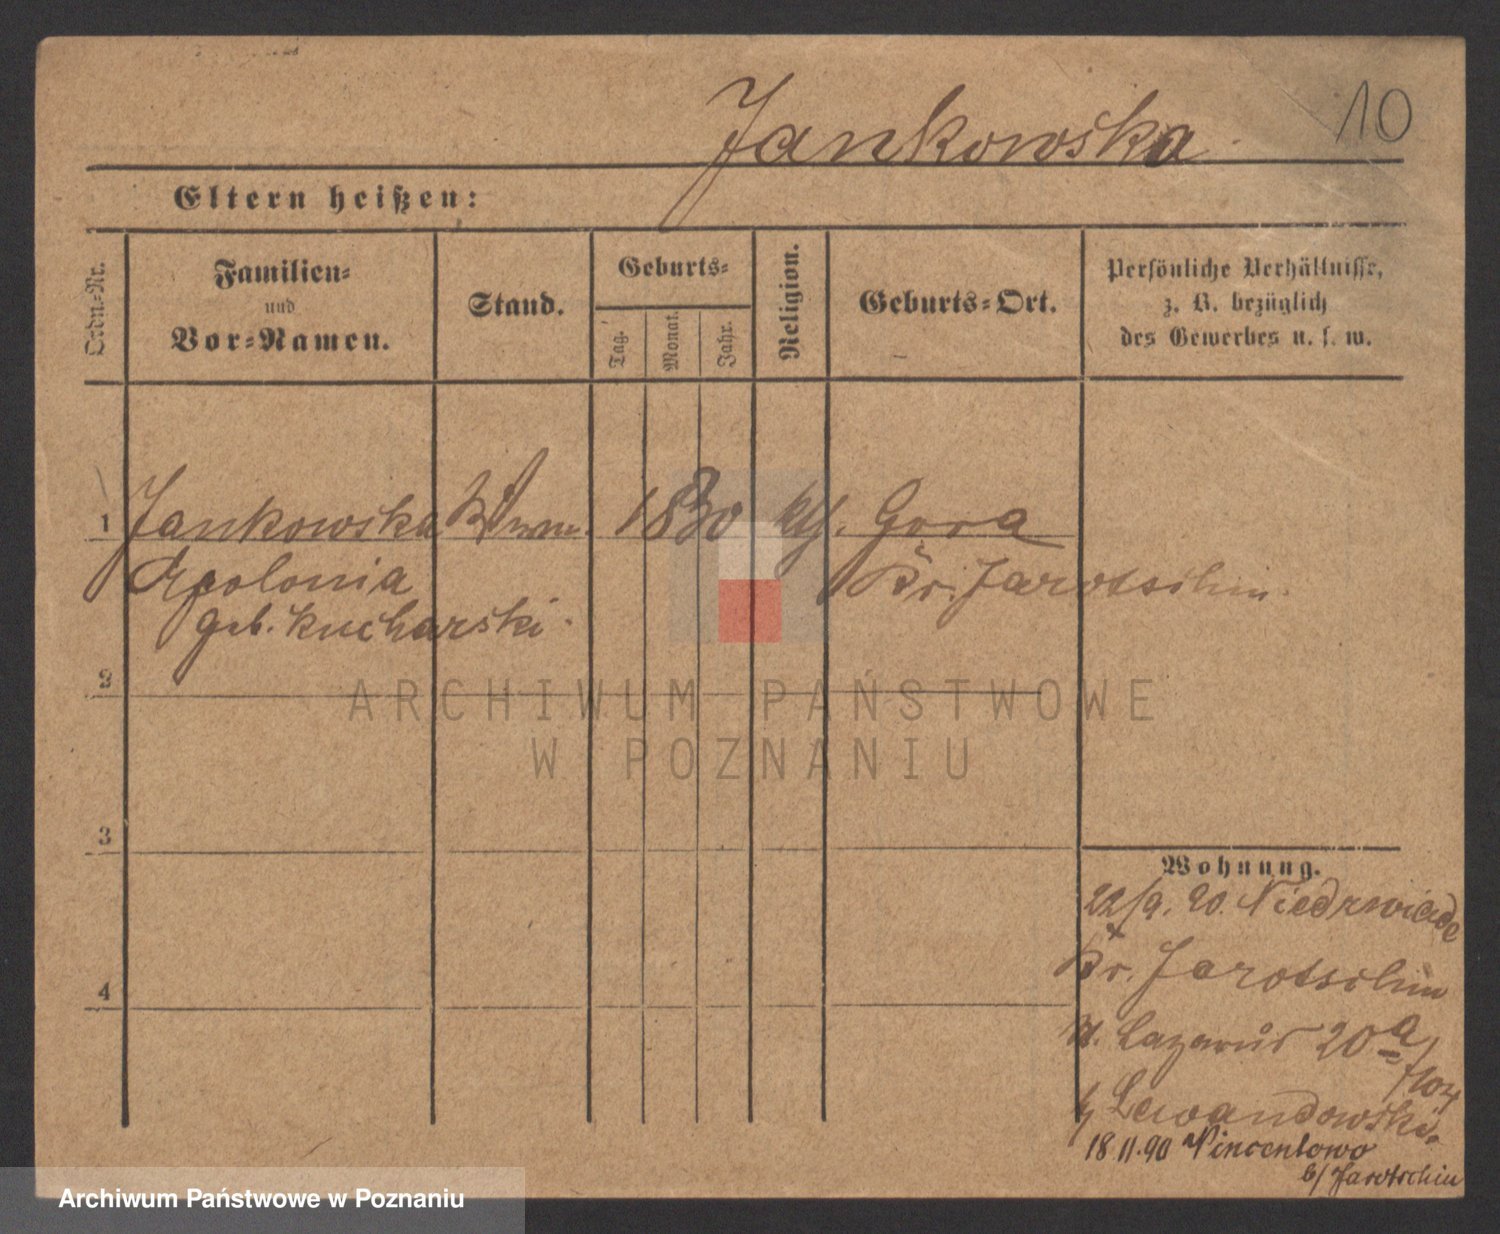 Jankowska
10
Eltern heißen:
Ordn.=Nr.
Familien=
und
Vor=Namen.
Stand.
Geburts=
Tag.
Monat.
Jahr.
Religion.
Geburts=Ort.
Persönliche Verhältnisse,
z. B. bezüglich
des Gewerbes u. s. w.
1 Jankowska 1830 kth. Gora
Apolonia Kr. Jarotschin.
geb. Kucharski.
2
3
4
Wohnung.
22/9. 90. Niedzwiade
Kr. Jarotschin
St. Lazarus 20a
b/ Lewandowski.
18.11.90 Vincentowo
b/ Jarotschin
ARCHIWUM PAŃSTWOWE
W POZNANIU
Archiwum Państwowe w Poznaniu